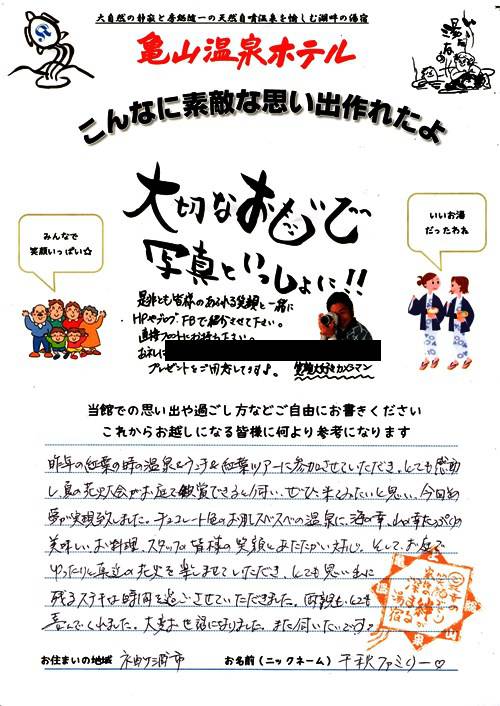 大自然の静寂と房総随一の天然自噴温泉を愉しむ湖畔の湯宿
亀山温泉ホテル
こんなに素敵な思い出作れたよ
大切なおもいで
写真といっしょに!!
みんなで
笑顔いっぱい☆
いいお湯
だったわね
是非とも皆様のあふれる笑顔と一緒に
HPやブログ・FBで紹介させて下さい。
直接フロントにお持ち下さい。
お礼に
プレゼントをご用意してます♪。
笑顔大好きカメラマン
当館での思い出や過ごし方などご自由にお書きください
これからお越しになる皆様に何より参考になります
昨年の紅葉の時の温泉とうふ&紅葉ツアーに参加させていただき、とても感動
し、夏の花火大会がお庭で観賞できると伺い、ぜひ来てみたいと思い、今回
夢が実現致しました。チョコレート色のお肌スベスベの温泉に、海の幸、山の幸たっぷりの
美味しいお料理、スタッフの皆様の笑顔とあたたかい対応。そしてお庭で
ゆったりと真近の花火を楽しませていただき、とても思い出に
残るステキな時間を過ごさせていただきました。両親もとても
喜んでくれました。大変お世話になりました。また伺いたいです。
お住まいの地域 袖ケ浦市 お名前(ニックネーム) 千秋ファミリー♡